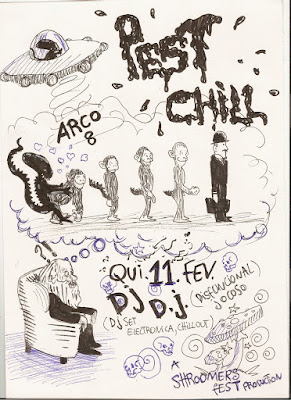 PEST
CHILL
ARCO
8
QUI. 11. FEV.
DJ D.J (DISFUNCIONAL)
JOCOSO
(DJ SET
ELECTRONICA, CHILLOUT)
A
SHROOMERS
FEST PRODUCTION